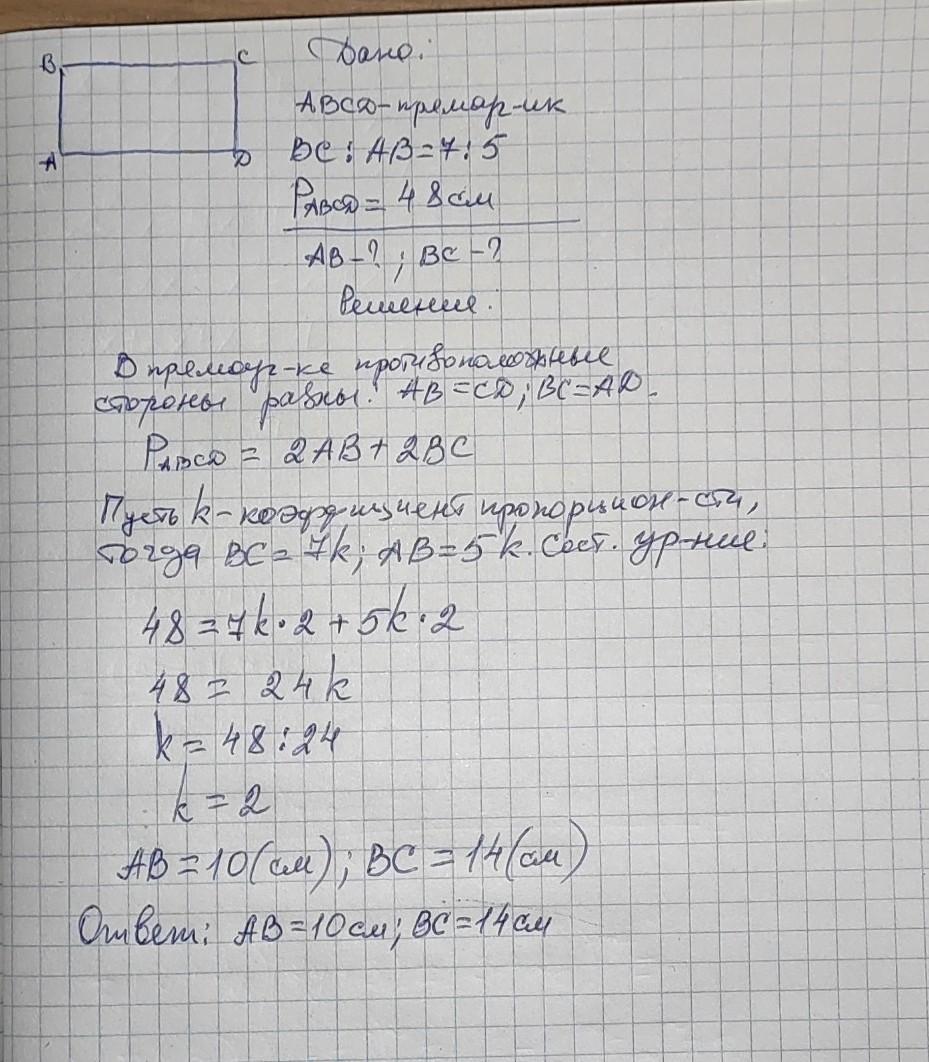 B C
A D
Дано:
ABCD-прямоуг-ик
BC : AB = 7 : 5
PABCD = 48 см
AB-? ; BC-?
Решение:
В прямоуг-ке противоположные
стороны равны: AB = CD; BC = AD.
PABCD = 2AB + 2BC
Пусть k-коэффициент пропорцион-сти,
тогда BC = 7k; AB = 5k. Сост. ур-ние:
48 = 7k·2 + 5k·2
48 = 24k
k = 48 : 24
k = 2
AB = 10(см); BC = 14(см)
Ответ: AB = 10см; BC = 14см